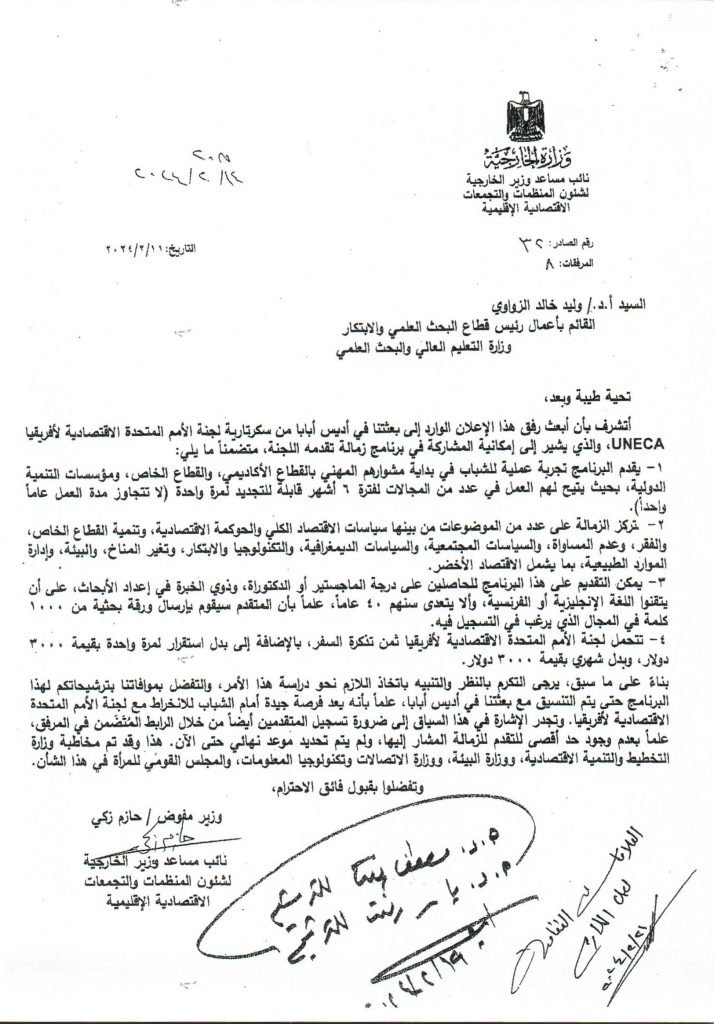 ٢٠٥
٢٠٢٤/٢/١٤
وزارة الخارجية
نائب مساعد وزير الخارجية
لشئون المنظمات والتجمعات
الاقتصادية الإقليمية
رقم الصادر: ٣٢
المرفقات: ٨
التاريخ: ٢٠٢٤/٢/١١
السيد أ.د./ وليد خالد الزواوي
القائم بأعمال رئيس قطاع البحث العلمي والابتكار
وزارة التعليم العالي والبحث العلمي
تحية طيبة وبعد،
أتشرف بأن أبعث رفق هذا الإعلان الوارد إلى بعثتنا في أديس أبابا من سكرتارية لجنة الأمم المتحدة الاقتصادية لأفريقيا
UNECA، والذي يشير إلى إمكانية المشاركة في برنامج زمالة تقدمه اللجنة، متضمناً ما يلي:
١- يقدم البرنامج تجربة عملية للشباب في بداية مشوارهم المهني بالقطاع الأكاديمي، والقطاع الخاص، ومؤسسات التنمية
الدولية، بحيث يتيح لهم العمل في عدد من المجالات لفترة ٦ أشهر قابلة للتجديد لمرة واحدة (لا تتجاوز مدة العمل عاماً
واحداً).
٢- تركز الزمالة على عدد من الموضوعات من بينها سياسات الاقتصاد الكلي والحوكمة الاقتصادية، وتنمية القطاع الخاص،
والفقر، وعدم المساواة، والسياسات المجتمعية، والسياسات الديمغرافية، والتكنولوجيا والابتكار، وتغير المناخ، والبيئة، وإدارة
الموارد الطبيعية، بما يشمل الاقتصاد الأخضر.
٣- يمكن التقديم على هذا البرنامج للحاصلين على درجة الماجستير أو الدكتوراة، وذوي الخبرة في إعداد الأبحاث، على أن
يتقنوا اللغة الإنجليزية أو الفرنسية، وألا يتعدى سنهم ٤٠ عاماً، علماً بأن المتقدم سيقوم بإرسال ورقة بحثية من ١٠٠٠
كلمة في المجال الذي يرغب في التسجيل فيه.
٤- تتحمل لجنة الأمم المتحدة الاقتصادية لأفريقيا ثمن تذكرة السفر، بالإضافة إلى بدل استقرار لمرة واحدة بقيمة ٣٠٠٠
دولار، وبدل شهري بقيمة ٣٠٠٠ دولار.
بناءً على ما سبق، يرجى التكرم بالنظر والتنبيه باتخاذ اللازم نحو دراسة هذا الأمر، والتفضل بموافاتنا بترشيحاتكم لهذا
البرنامج حتى يتم التنسيق مع بعثتنا في أديس أبابا، علماً بأنه يعد فرصة جيدة أمام الشباب للانخراط مع لجنة الأمم المتحدة
الاقتصادية لأفريقيا. وتجدر الإشارة في هذا السياق إلى ضرورة تسجيل المتقدمين أيضاً من خلال الرابط المُتَضمن في المرفق،
علماً بعدم وجود حد أقصى للتقدم للزمالة المشار إليها، ولم يتم تحديد موعد نهائي حتى الآن. هذا وقد تم مخاطبة وزارة
التخطيط والتنمية الاقتصادية، ووزارة البيئة، ووزارة الاتصالات وتكنولوجيا المعلومات، والمجلس القومي للمرأة في هذا الشأن.
وتفضلوا بقبول فائق الاحترام،
وزير مفوض/ حازم زكي
حازم زكي
نائب مساعد وزير الخارجية
لشئون المنظمات والتجمعات
الاقتصادية الإقليمية